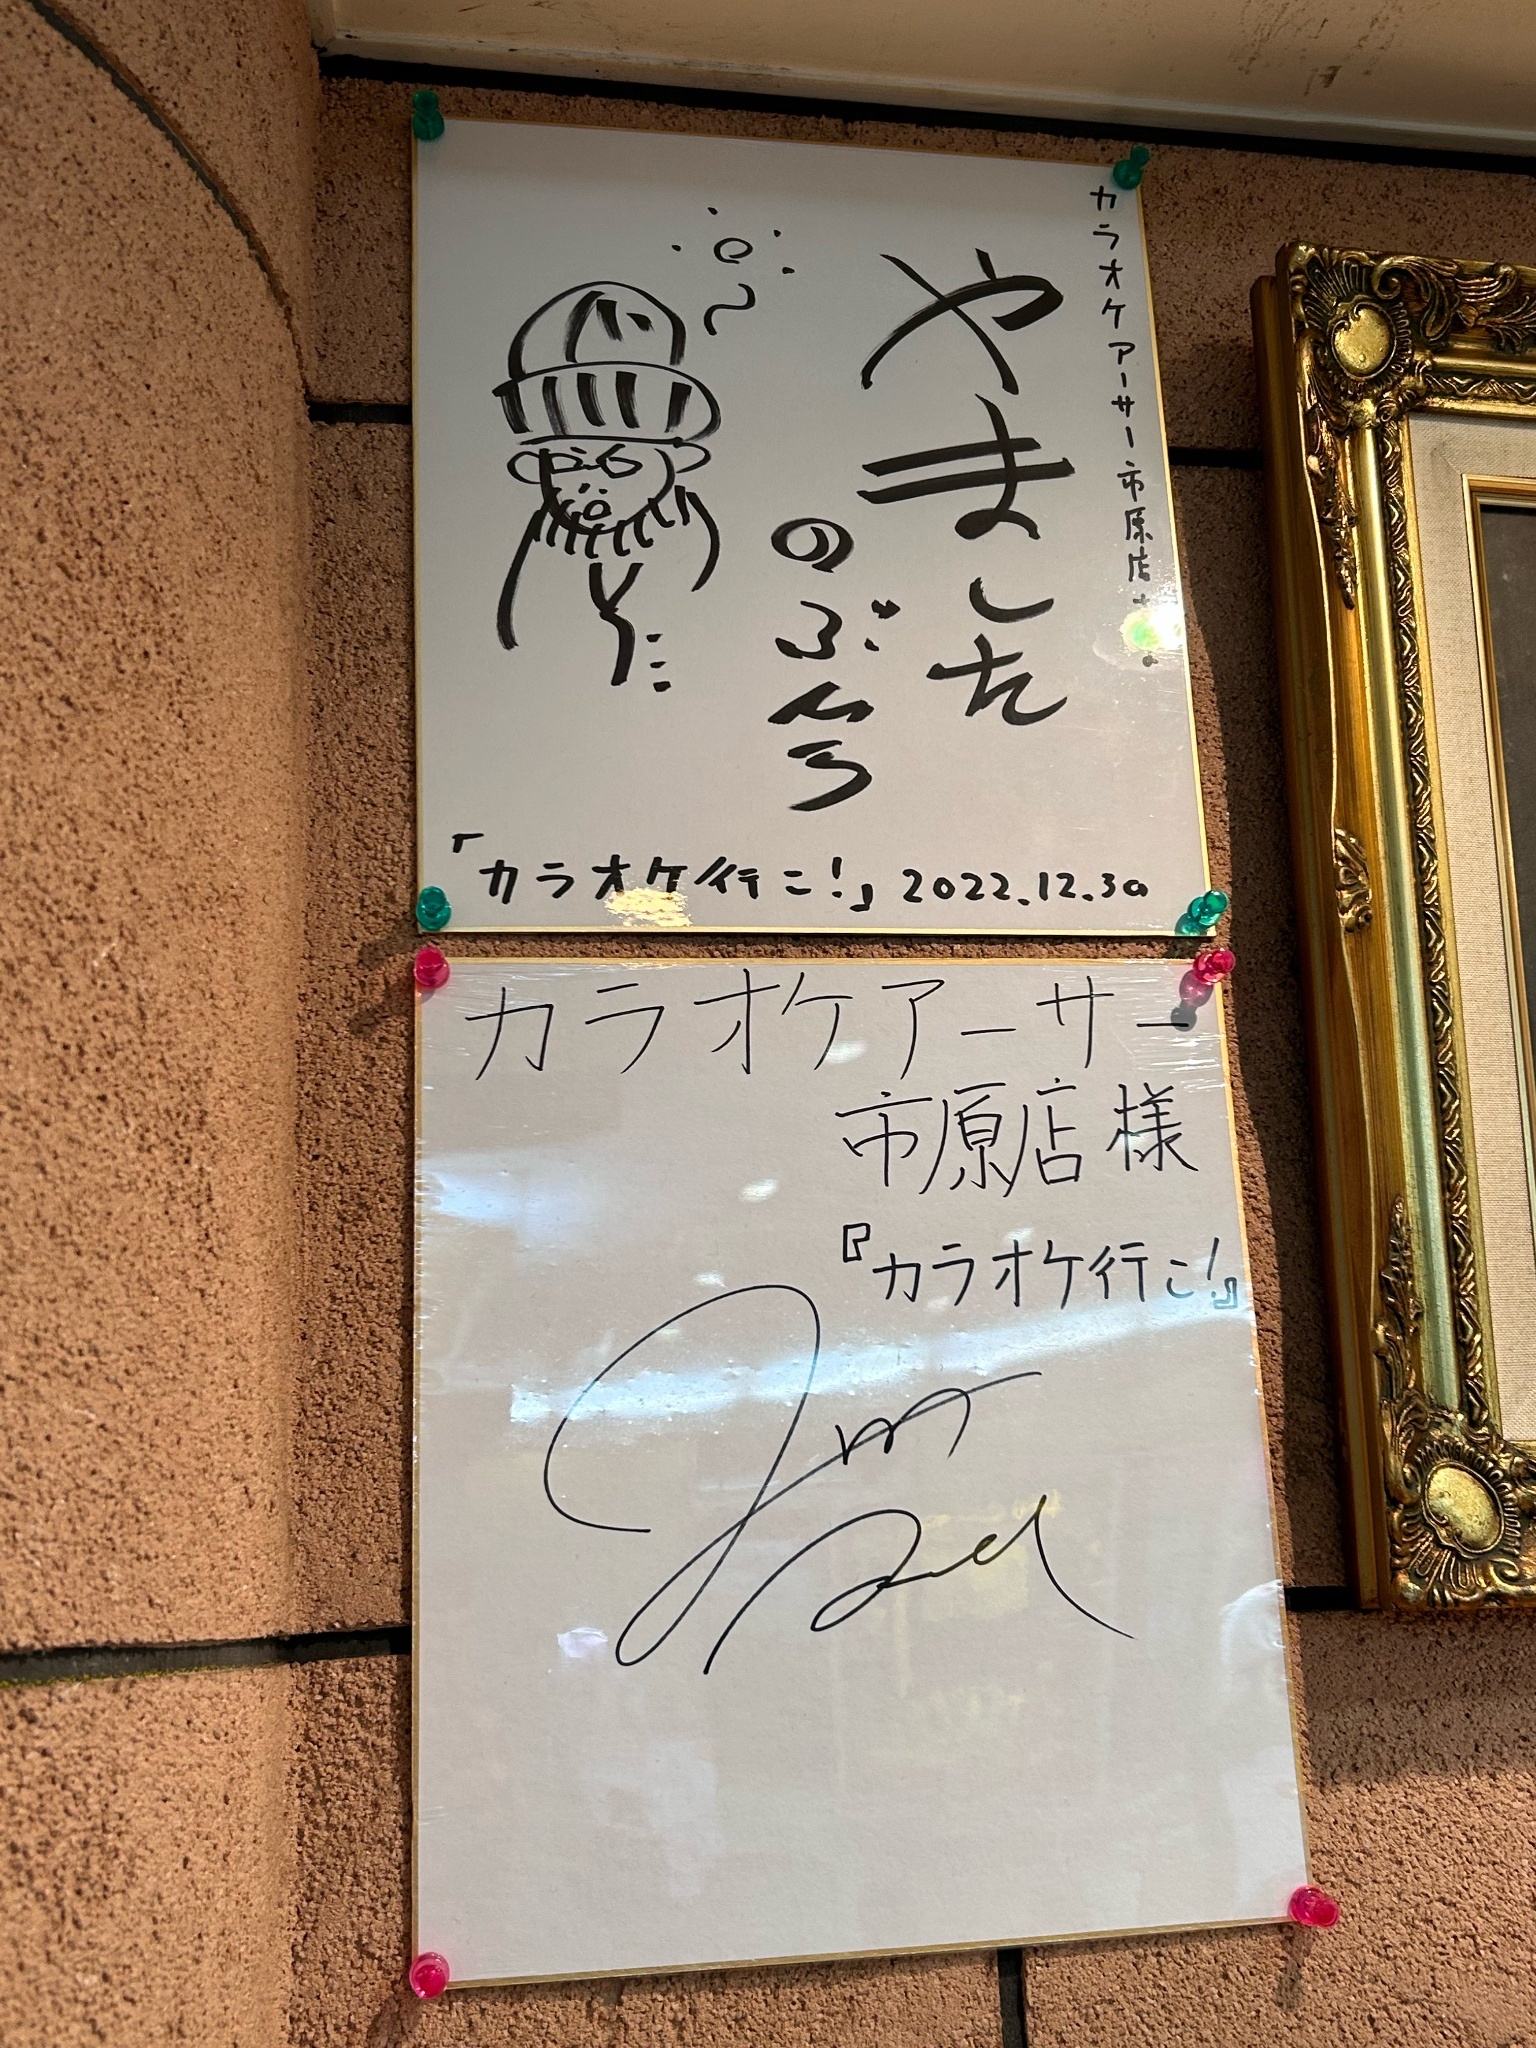 カラオケアーサー市原店
やました
のぶ
「カラオケ行こ!」2022.12.30
カラオケアーサー
市原店 様
『カラオケ行こ!』